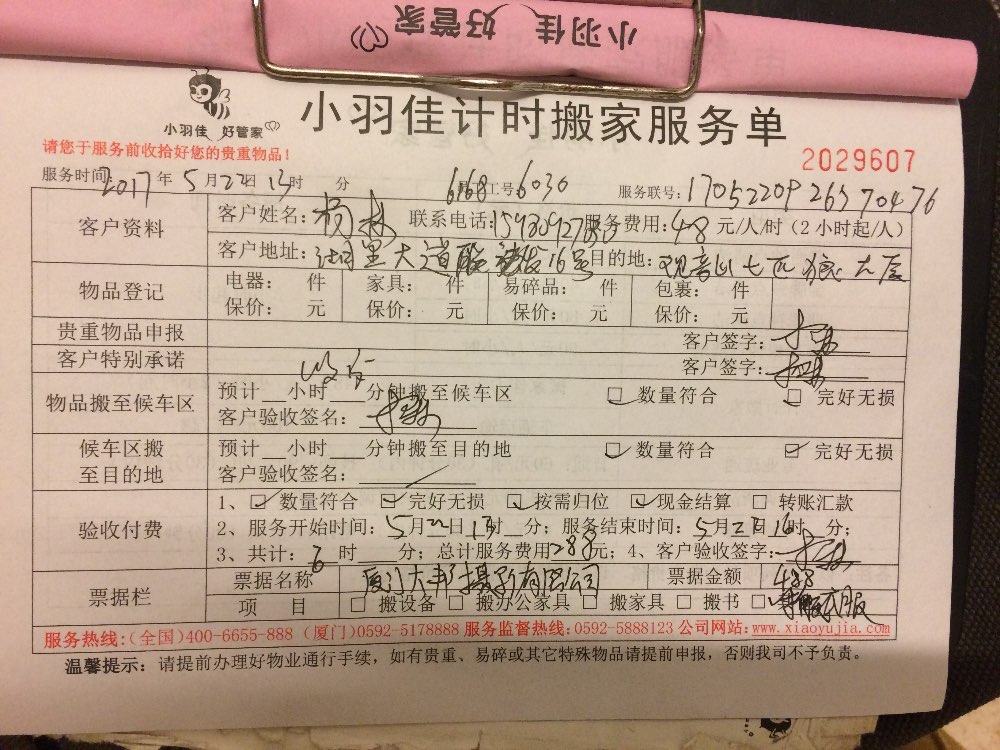 小羽佳 好管家
小羽佳 好管家
小羽佳计时搬家服务单
请您于服务前收拾好您的贵重物品!
2029607
服务时间: 2017 年 5 月 22 日 13 时 分 6168 工号: 6030 服务联号: 1705220926370476
客户资料
客户姓名: 杨林 联系电话: 服务费用: 48 元/人/时 (2 小时起/人)
客户地址: 大道 16号 目的地: 观音山七匹狼大厦
物品登记
电器: 件 家具: 件 易碎品: 件 包裹: 件
保价: 元 保价: 元 保价: 元 保价: 元
贵重物品申报 客户签字:
客户特别承诺 客户签字:
物品搬至候车区
预计__小时__分钟搬至候车区 数量符合 完好无损
客户验收签名:
候车区搬至目的地
预计__小时__分钟搬至目的地 数量符合 完好无损
客户验收签名:
验收付费
1、 数量符合 完好无损 按需归位 现金结算 转账汇款
2、服务开始时间: 5月22日13时 分; 服务结束时间: 5月22日16时 分;
3、共计: 6 时 分; 总计服务费用288元; 4、客户验收签字:
票据栏
票据名称 厦门大邦摄影有限公司 票据金额 488
项 目 搬设备 搬办公家具 搬家具 搬书 衣服
服务热线:(全国)400-6655-888 (厦门)0592-5178888 服务监督热线:0592-5888123 公司网站:www.xiaoyujia.com
温馨提示: 请提前办理好物业通行手续,如有贵重、易碎或其它特殊物品请提前申报,否则我司不予负责。